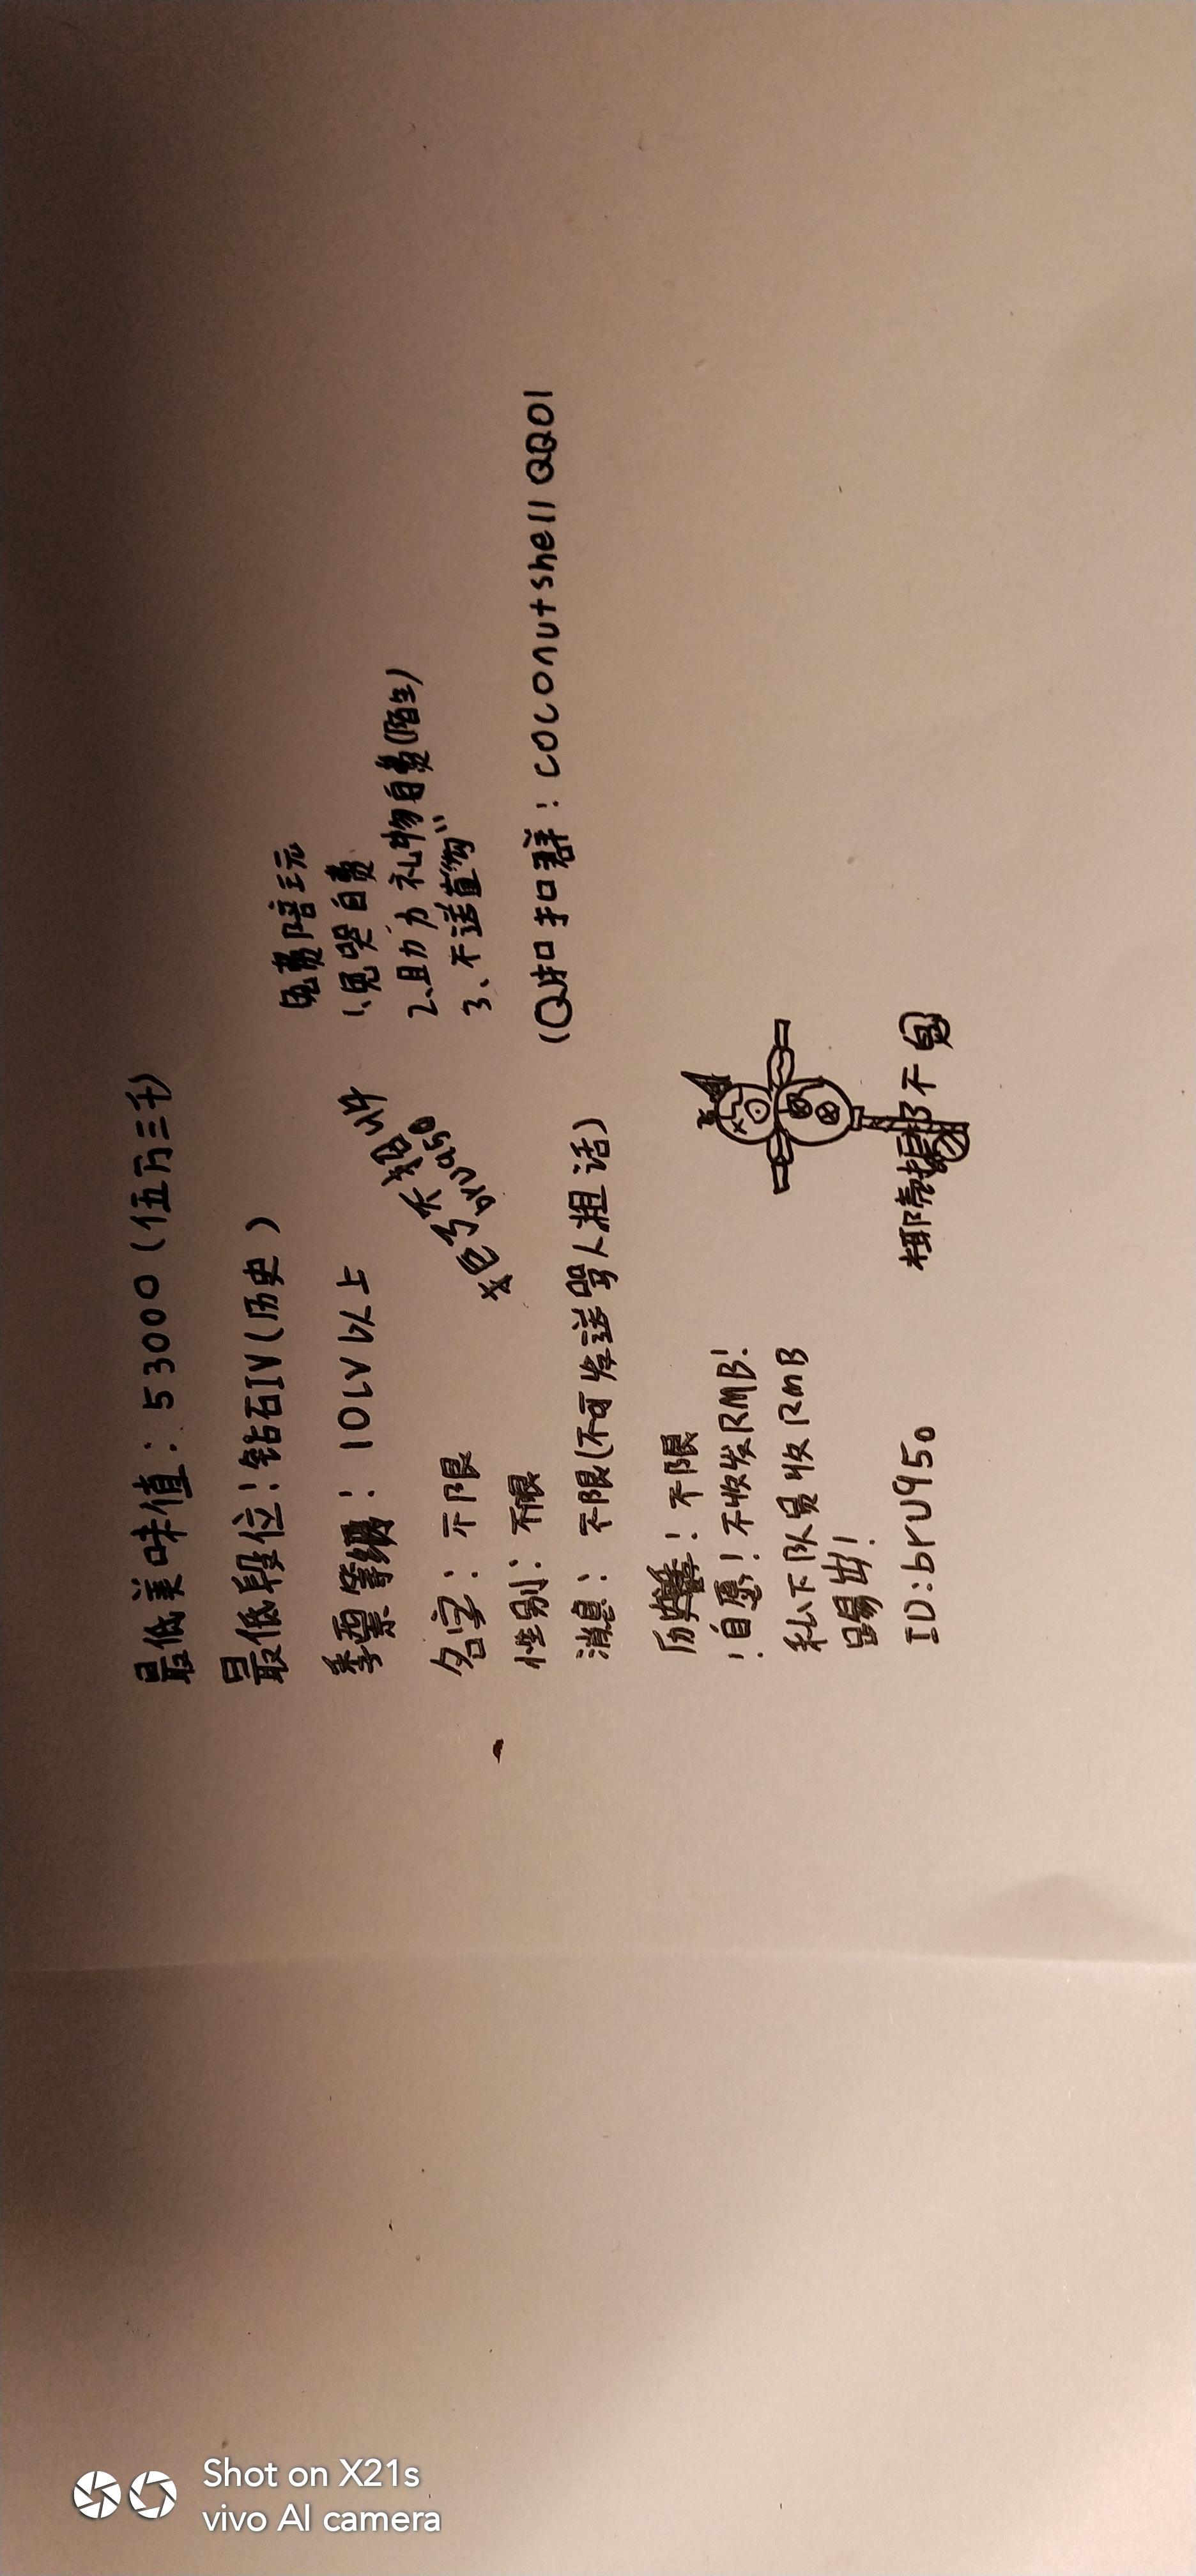 最低美味值：53000（伍万三千）
最低段位：钻石IV（历史）
季票等级：10LV以上
名字：不限
性别：不限
消息：不限（不可发送骂人粗话）
历史：不限
！自愿！不收发RMB！
私下队员收RMB
踢出！
ID:bru950
bru950
免费陪玩
1、免哭自费
2、助力礼物自费(陌生)
3、不送直购"
(Q扣扣群：coconutshellQQ01
椰壳都不兔
Shot on X21s
vivo AI camera